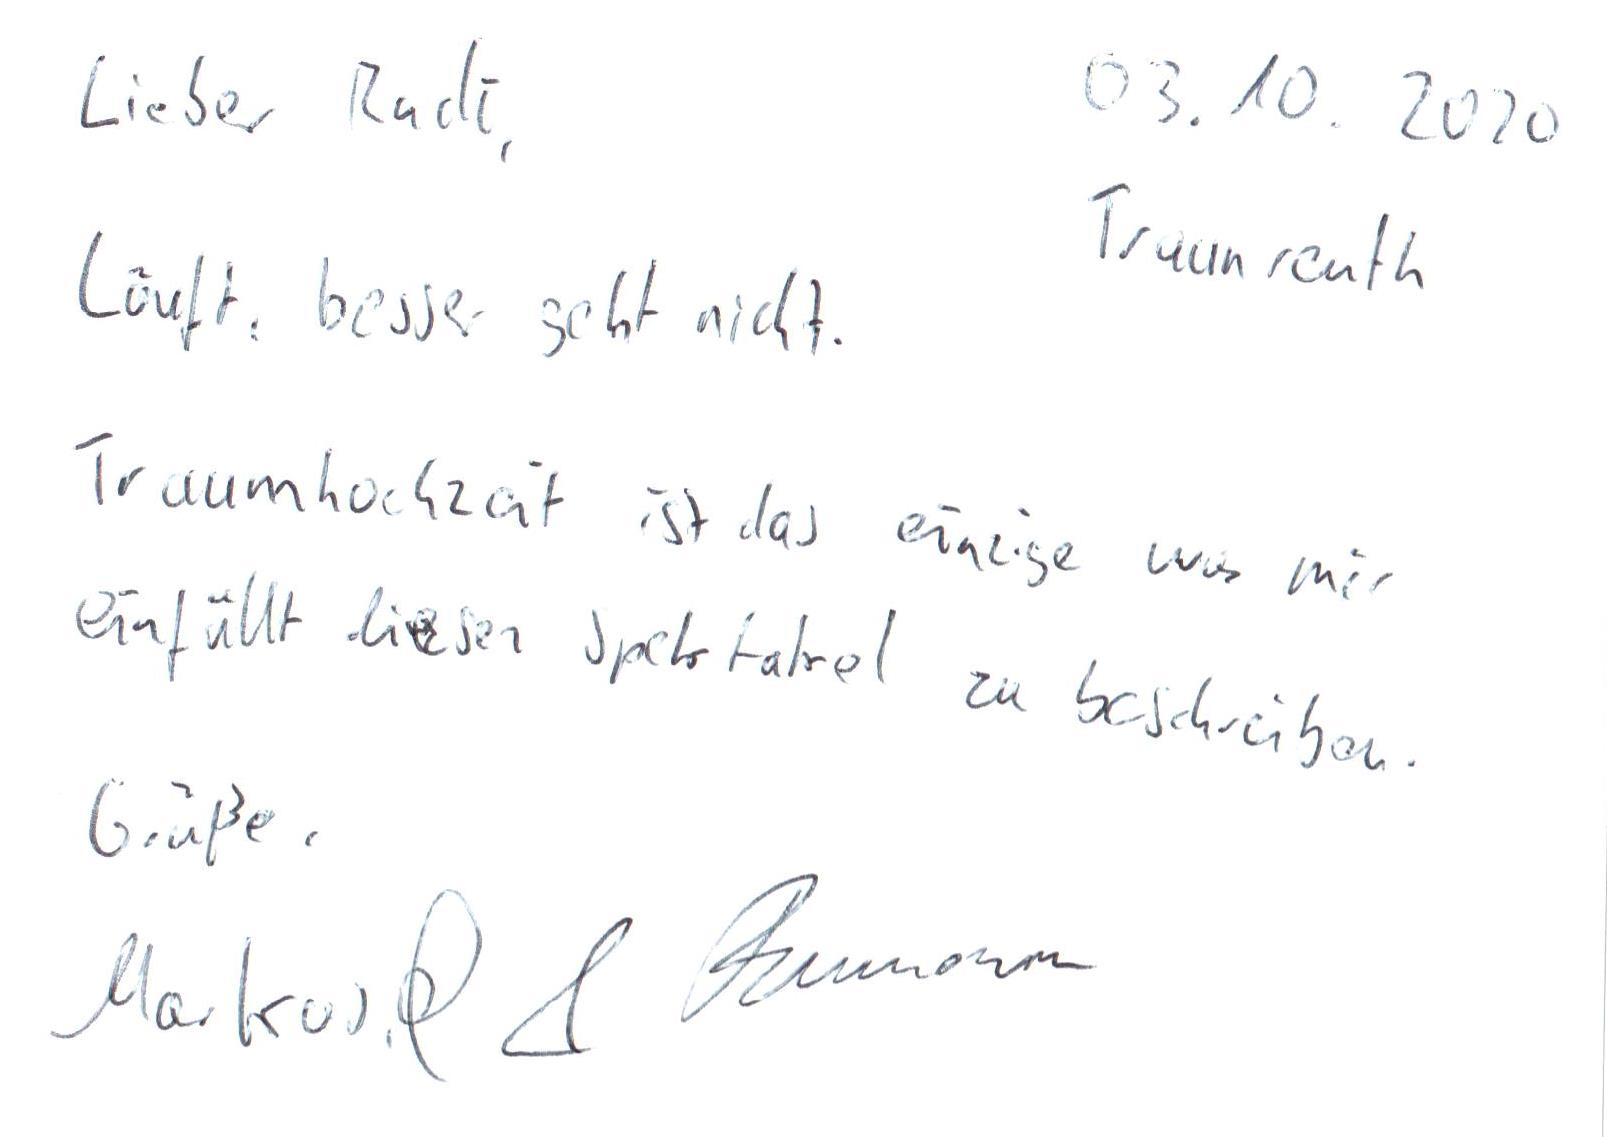 Lieber Rudi,
03.10.2020
Traunreuth
Läuft, besser geht nicht.
Traumhochzeit ist das einzige was mir
einfällt diesen Spektakel zu beschreiben.
Grüße,
Markus